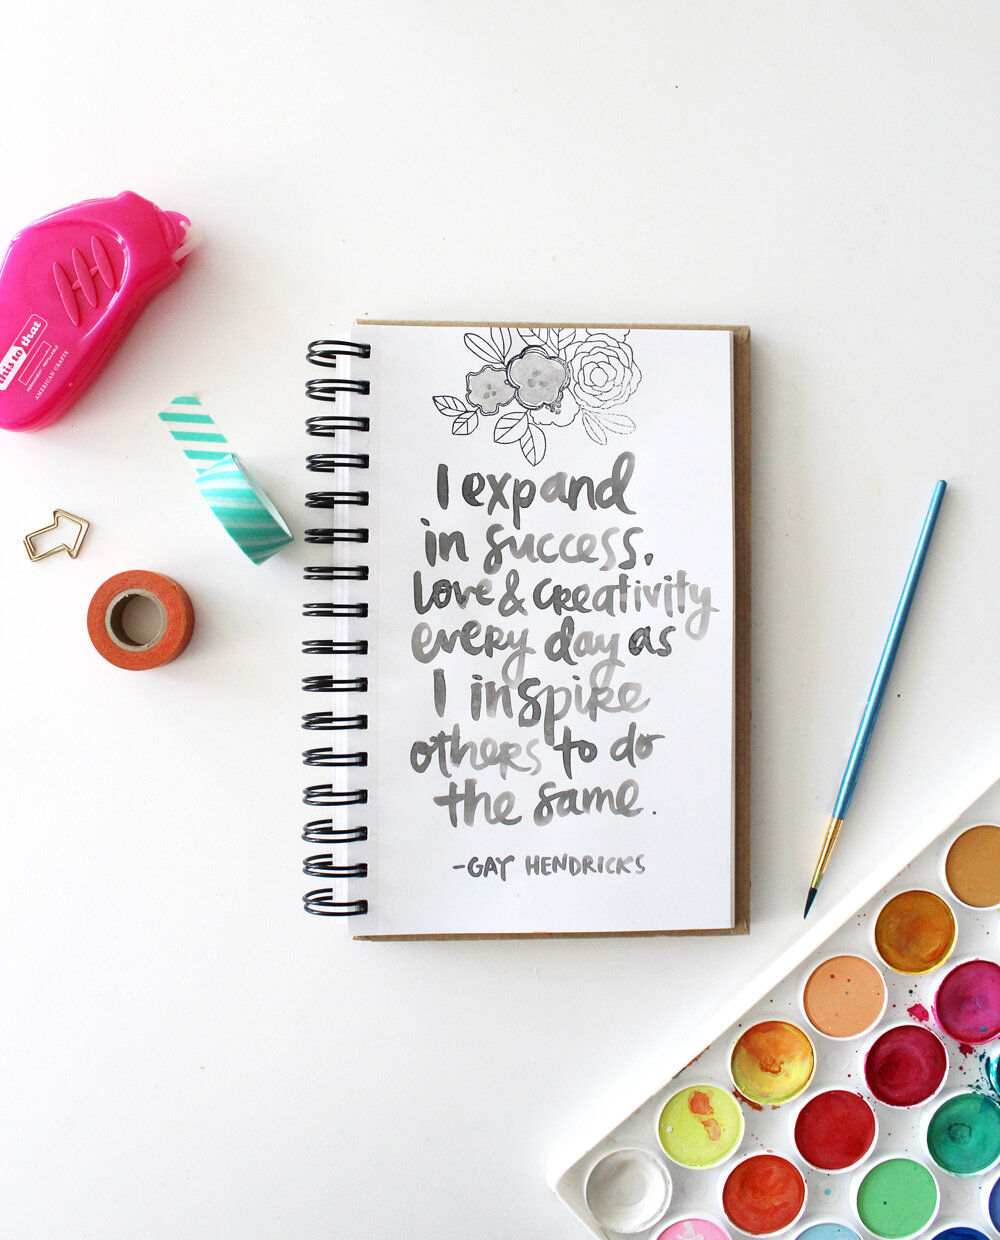 this to that
PERMANENT, REFILLABLE
AMERICAN CRAFTS
I expand
in success,
love & creativity
every day as
I inspire
others to do
the same.
-GAY HENDRICKS